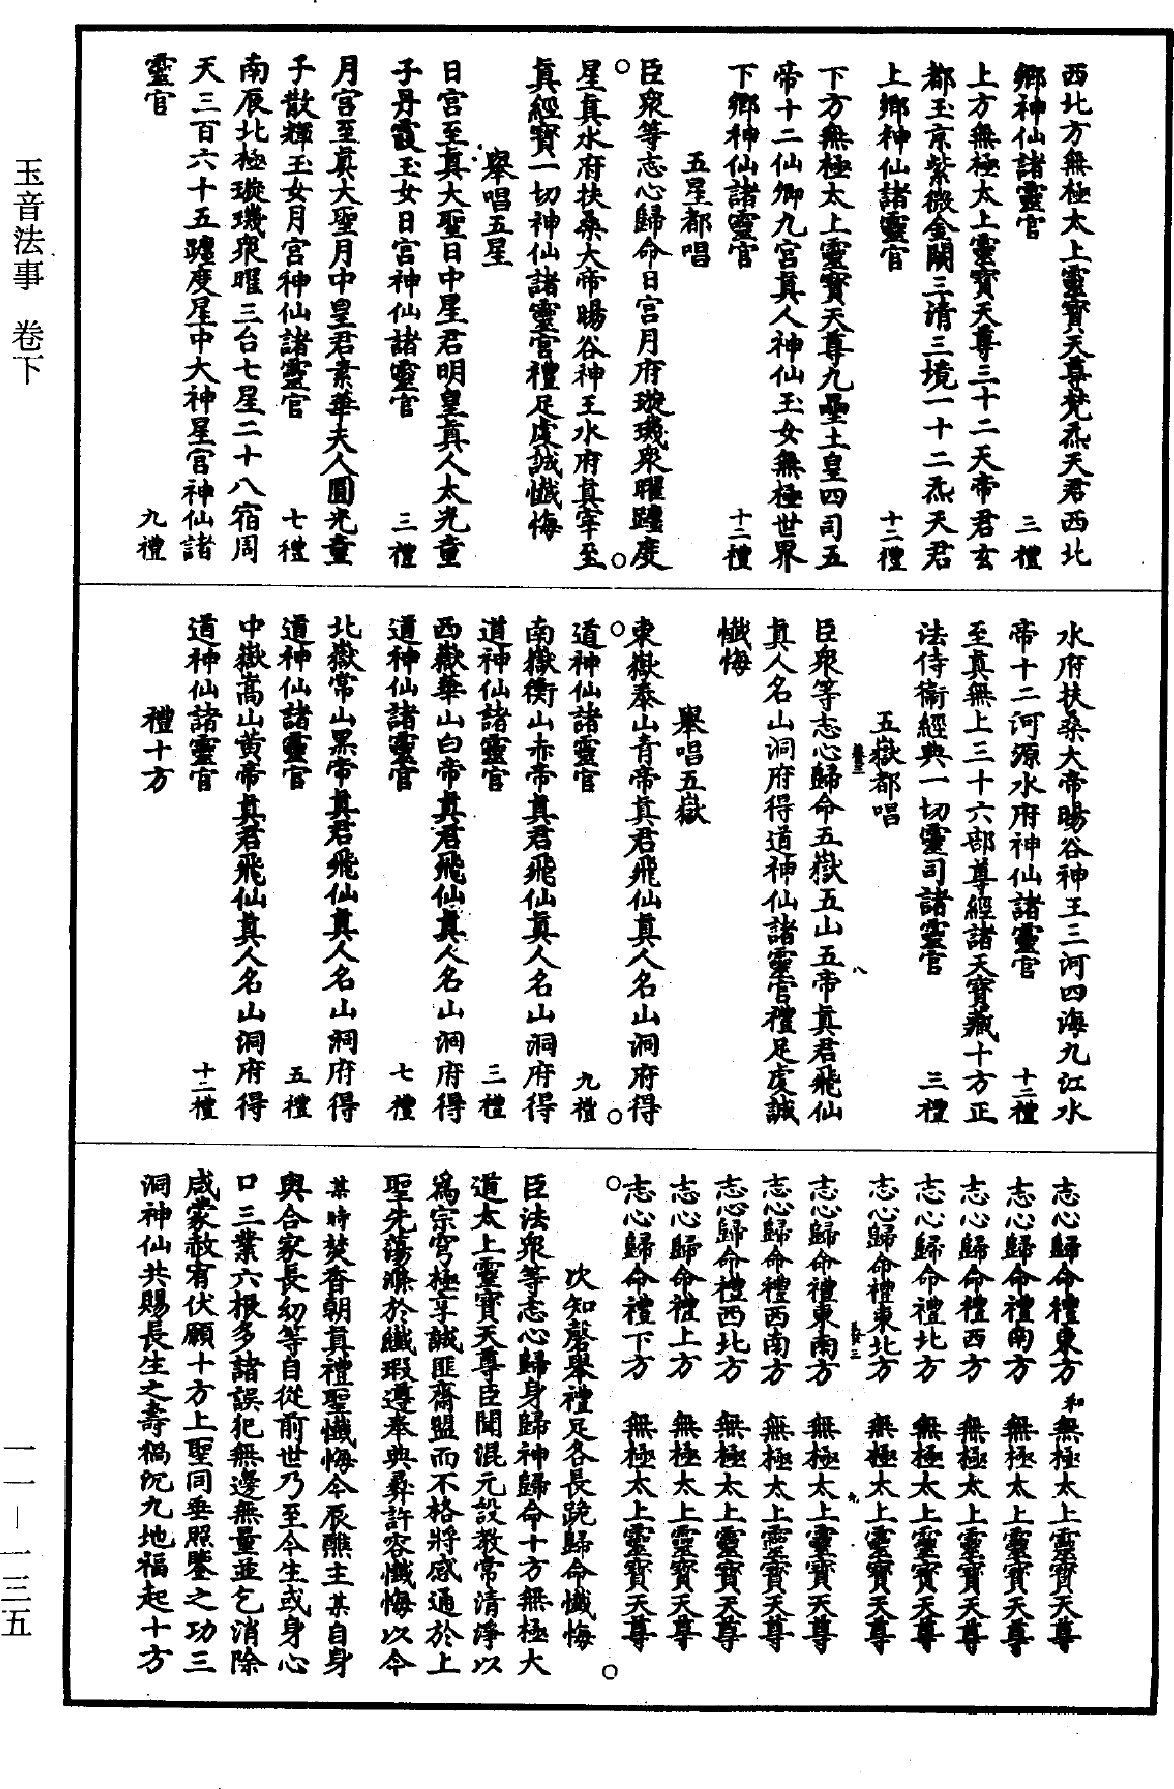 西北方無極太上靈寶天尊梵炁天君西北
鄉神仙諸靈官　三禮
上方無極太上靈寶天尊三十二天帝君玄
都玉京紫微金闕三清三境一十二炁天君
上鄉神仙諸靈官　十二禮
下方無極太上靈寶天尊九壘土皇四司五
帝十二仙卿九宮真人神仙玉女無極世界
下鄉神仙諸靈官　十二禮
五星都唱
臣眾等志心歸命日宮月府璇璣眾曜躔度
星真水府扶桑大帝暘谷神王水府真宰至
真經寶一切神仙諸靈官禮足虔誠懺悔
舉唱五星
日宮至真大聖日中星君明皇真人太光童
子丹霞玉女日宮神仙諸靈官　三禮
月宮至真大聖月中皇君素華夫人圓光童
子散輝玉女月宮神仙諸靈官　七禮
南辰北極璇璣眾曜三台七星二十八宿周
天三百六十五躔度星中大神星官神仙諸
靈官　九禮
水府扶桑大帝暘谷神王三河四海九江水
帝十二河源水府神仙諸靈官　十二禮
至真無上三十六部尊經諸天寶藏十方正
法侍衞經典一切靈司諸靈官　三禮
五嶽都唱
八
臣眾等志心歸命五嶽五山五帝真君飛仙
真人名山洞府得道神仙諸靈官禮足虔誠
懺悔
舉唱五嶽
東嶽泰山青帝真君飛仙真人名山洞府得
道神仙諸靈官　九禮
南嶽衡山赤帝真君飛仙真人名山洞府得
道神仙諸靈官　三禮
西嶽華山白帝真君飛仙真人名山洞府得
道神仙諸靈官　七禮
北嶽常山黑帝真君飛仙真人名山洞府得
道神仙諸靈官　五禮
中嶽嵩山黃帝真君飛仙真人名山洞府得
道神仙諸靈官　十二禮
禮十方
志心歸命禮東方　和無極太上靈寶天尊
志心歸命禮南方　無極太上靈寶天尊
志心歸命禮西方　無極太上靈寶天尊
志心歸命禮北方　無極太上靈寶天尊
志心歸命禮東北方　無極太上靈寶天尊
九
志心歸命禮東南方　無極太上靈寶天尊
志心歸命禮西南方　無極太上靈寶天尊
志心歸命禮西北方　無極太上靈寶天尊
志心歸命禮上方　無極太上靈寶天尊
志心歸命禮下方　無極太上靈寶天尊
次知磬舉禮足各長跪歸命懺悔
臣法眾等志心歸身歸神歸命十方無極大
道太上靈寶天尊臣聞混元設教常清淨以
為宗穹極享誠匪齋盟而不格將感通於上
聖先蕩滌於纖瑕遵奉典彝許容懺悔以今
某時焚香朝真禮聖懺悔今辰醮主某自身
與合家長幼等自從前世乃至今生或身心
口三業六根多諸誤犯無邊無量並乞消除
咸蒙赦宥伏願十方上聖同垂照鑒之功三
洞神仙共賜長生之壽禍沉九地福起十方
玉音法事　卷下
一一－一三五